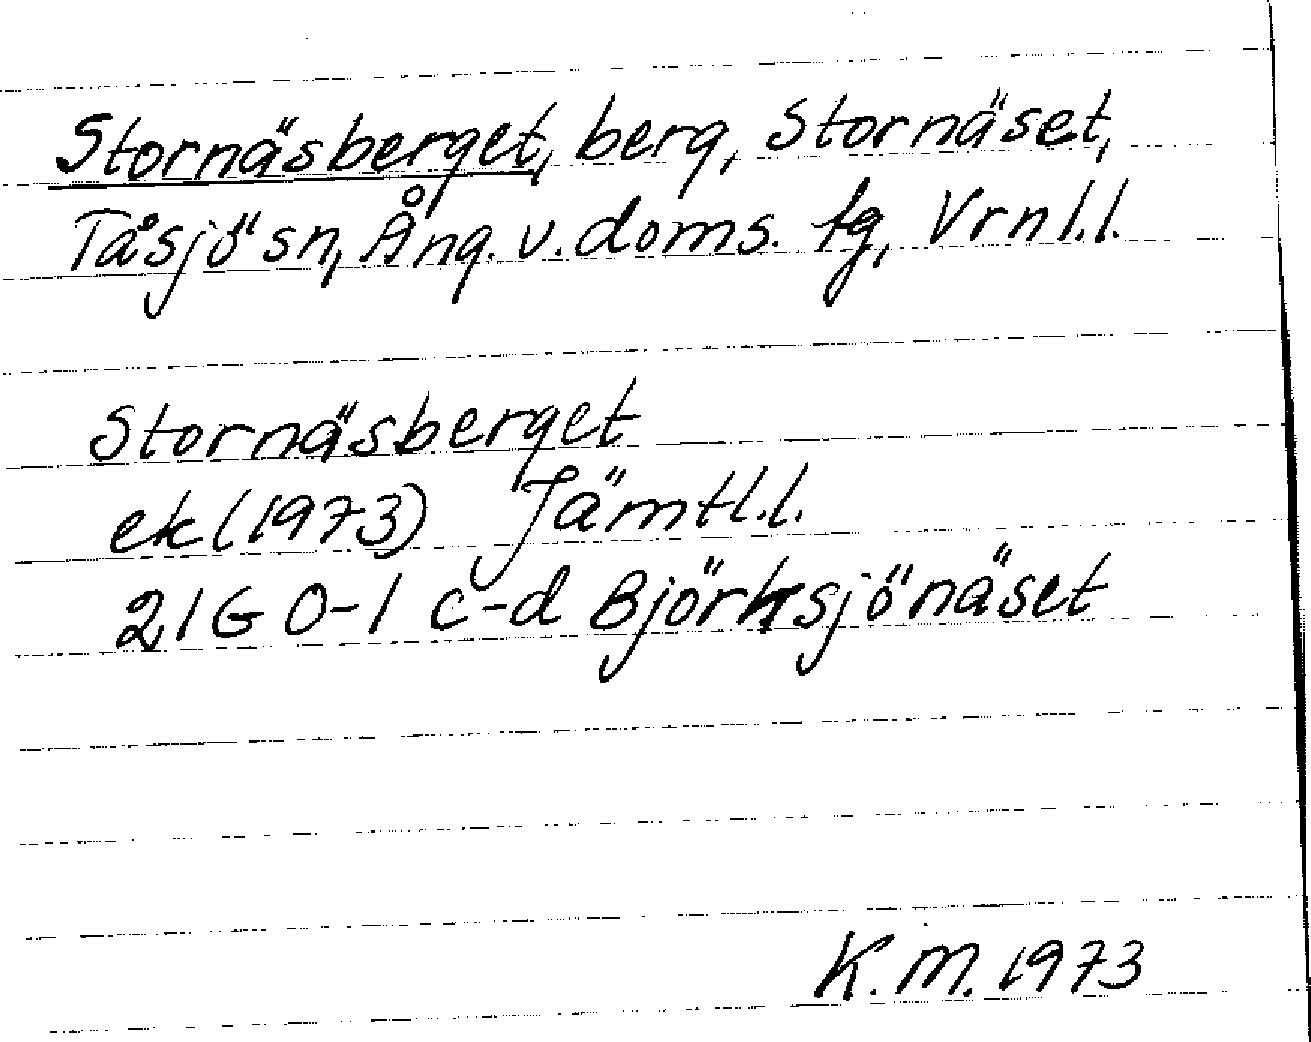 Stornäsberget, berg, Stornäset,
Tåsjö sn, Ång. v. doms. tg, Vrnl.l.
Stornäsberget
ek (1973) Jämtl.l.
21G 0-1 c-d Björksjönäset
K.M. 1973